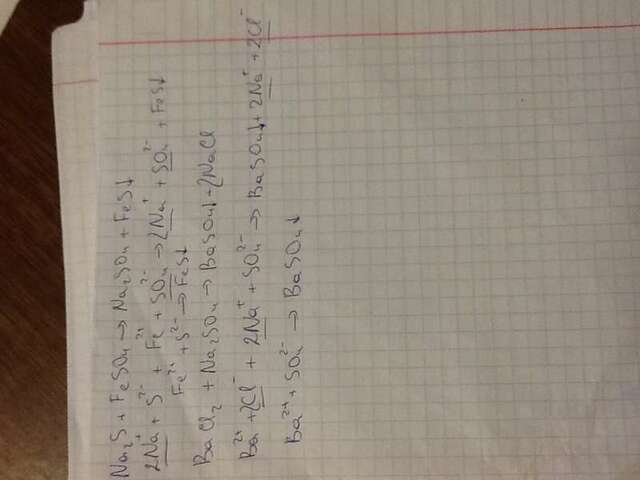 Na₂S + FeSO₄ → Na₂SO₄ + FeS↓
2Na⁺ + S²⁻ + Fe²⁺ + SO₄²⁻ → 2Na⁺ + SO₄²⁻ + FeS↓
Fe²⁺ + S²⁻ → FeS↓
BaCl₂ + Na₂SO₄ → BaSO₄↓ + 2NaCl
Ba²⁺ + 2Cl⁻ + 2Na⁺ + SO₄²⁻ → BaSO₄↓ + 2Na⁺ + 2Cl⁻
Ba²⁺ + SO₄²⁻ → BaSO₄↓